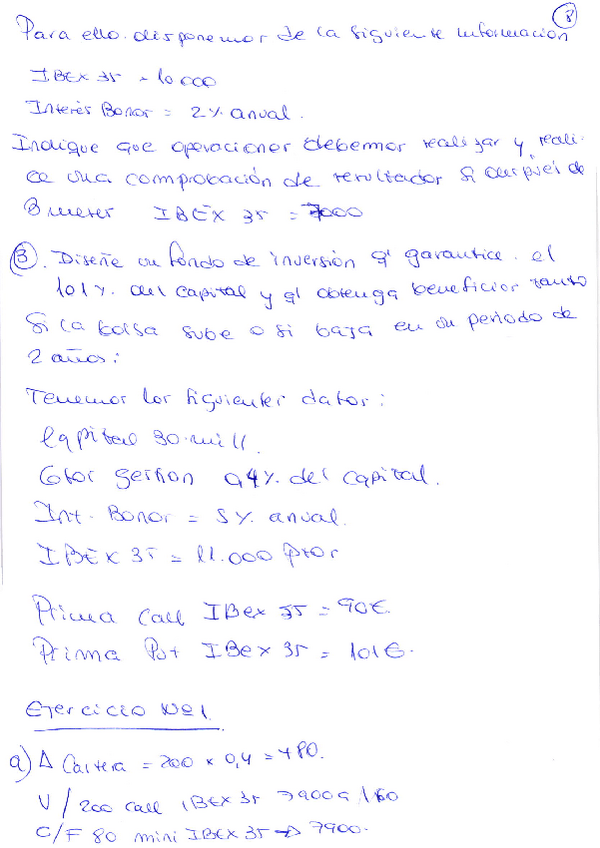 8
Para ello disponemos de la siguiente información
IBEX 35 = 10.000
Interés Bonos = 2% anual.
Indique que operaciones debemos realizar y reali-
ce una comprobación de resultados si después de
3 meses IBEX 35 = 7000
3. Diseñe un fondo de inversión q' garantice el
101% del capital y q' obtenga beneficios tanto
si la bolsa sube o si baja en un periodo de
2 años:
Tenemos los siguientes datos:
Capital 30 mill.
Costos gestion 0,4% del capital.
Int. Bonos = 5% anual.
IBEX 35 = 11.000 ptos
Prima Call IBEX 35 = 90€.
Prima Put IBEX 35 = 101€.
Ejercicio Nº 1.
a) Δ Cartera = 200 x 0,4 = +80.
V/ 200 call IBEX 35 7900 a 160
C/F 80 mini IBEX 35 → 7900.